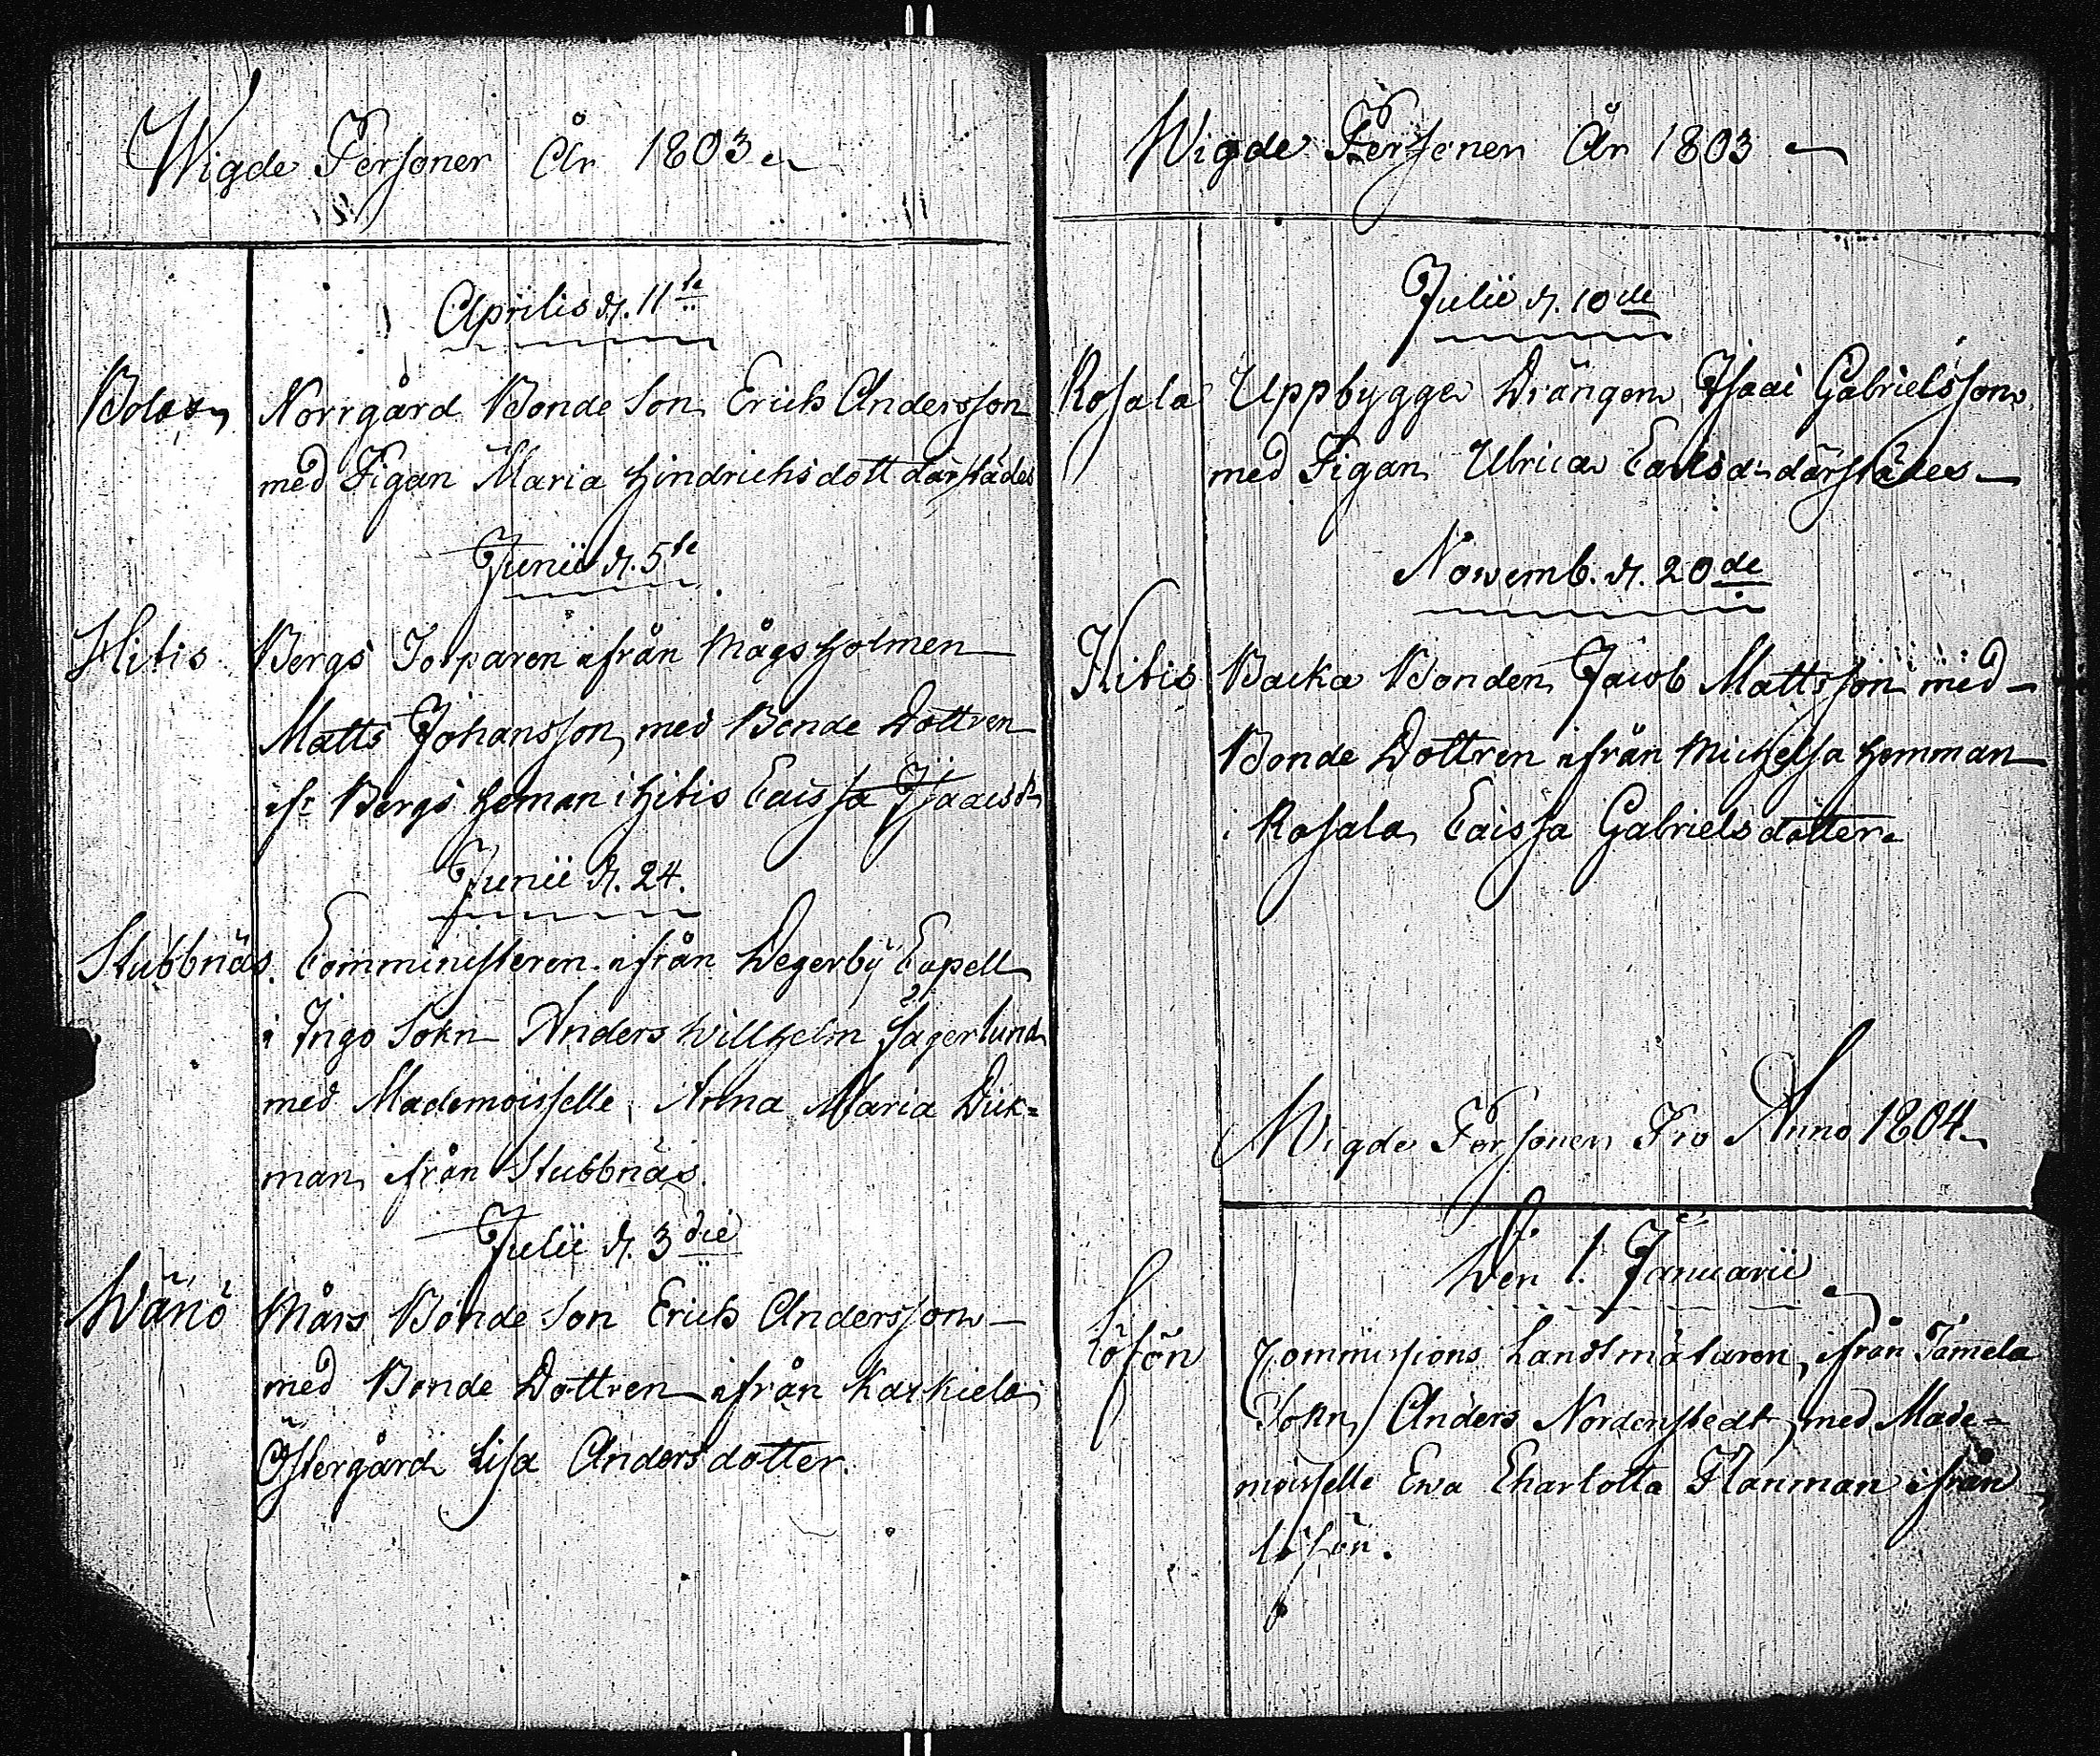 Wigde Personer År 1803
Aprilis d. 11te
Bolax Norrgård Bonde Son Erich Andersson
med Pigan Maria Hindrichsdott därstädes
Junii d. 5te
Hitis Bergs Torparen ifrån Mågsholmen
Matts Johansson, med Bonde Dottren
ifr. Bergs Heman i Hitis Caissa Isaacsdr
Junii d. 24.
Stubbnäs. Comministeren ifrån Degerby Capell
i Ingo Sokn Anders Willhelm Fagerlund
med Mademoisselle Anna Maria Dick=
man ifrån Stubbnäs.
Julii d. 3die
Wänö Mårs Bonde Son Erich Andersson
med Bonde Dottren ifrån Karkiela
Östergård Lisa Andersdotter.
Wigde Personer År 1803
Julii d. 10de
Rosala Uppbygge Drängen Isaac Gabrielsson
med Pigan Ulrica Carlsd. därstädes
Novemb. d. 20de
Hitis Backa Bonden Jacob Mattsson med
Bonde Dottren ifrån Michelsa Hemman
i Rosala Caissa Gabrielsdotter
Wigde Personer Pro Anno 1804
Den 1. Januarii
Löfön Commissions Landtmätaren, ifrån Tämela
Sokn, Anders Nordenstedt med Made=
moisselle Ewa Charlotta Flanman ifrån
Löfön.